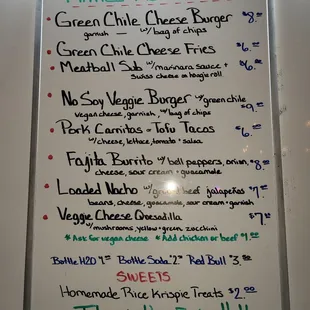 Green Chile Cheese Burger $8.00
garnish — w/ bag of chips
Green Chile Cheese Fries $6.00
Meatball Sub w/ marinara sauce + $6.00
Swiss cheese on hoagie roll
No Soy Veggie Burger w/ green chile
Vegan cheese, garnish, w/ bag of chips $9.00
Pork Carnitas or Tofu Tacos $6.00
w/ cheese, lettuce, tomato + salsa
Fajita Burrito w/ bell peppers, onion, $8.00
cheese, sour cream + guacamole
Loaded Nacho w/ beef jalapeños $7.00
beans, cheese, guacamole, sour cream + garnish
Veggie Cheese Quesadilla $7.00
w/ mushrooms, yellow + green zucchini
* Ask for vegan cheese * Add chicken or beef $1.00
Bottle H2O 1.00 Bottle Soda 2.00 Red Bull 3.00
SWEETS
Homemade Rice Krispie Treats $2.00